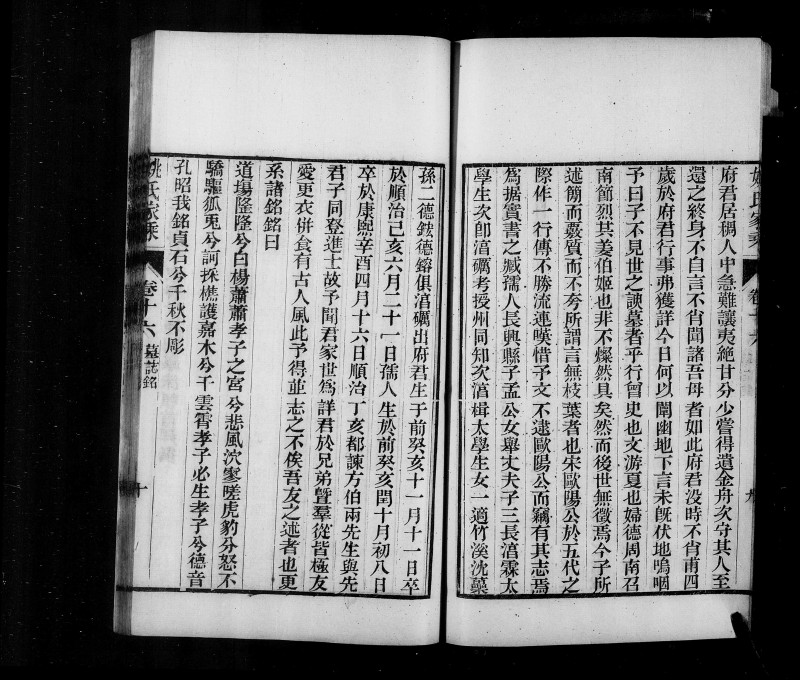 姚氏家乘
卷十六
九
府君居稱人中急難讓夷絶甘分少嘗得遺金舟次守其人至
還之終身不自言不肖聞諸吾母者如此府君没時不肖甫四
歲於府君行事弗獲詳今日何以闡幽地下言未旣伏地嗚咽
予曰子不見世之諛墓者乎行曾史也文游夏也婦德周南召
南節烈其姜伯姬也非不爛然具矣然而後世無徵焉今子所
述簡而覈質而不夸所謂言無枝葉者也宋歐陽公於五代之
際作一行傳不勝流連嘆惜予文不逮歐陽公而竊有其志焉
爲据實書之臧孺人長興縣子孟公女舉丈夫子三長涫霖太
學生次卽涫礪考授州同知次涫楫太學生女一適竹溪沈蘂
孫二德鉉德鎔俱涫礪出府君生于前癸亥十一月十一日卒
於順治己亥六月二十一日孺人生於前癸亥閏十月初八日
卒於康熙辛酉四月十六日順治丁亥都諫方伯兩先生與先
君子同登進士故予聞君家世爲詳君於兄弟曁羣從皆極友
愛更衣併食有古人風此予得並志之不俟吾友之述者也更
系諸銘銘曰
道場隆隆兮白楊蕭蕭孝子之宫兮悲風泬寥嗟虎豹兮怒不
驕驅狐兎兮訶採樵護嘉木兮干雲霄孝子必生孝子兮德音
孔昭我銘貞石兮千秋不彫
姚氏家乘
卷十六
墓誌銘
十